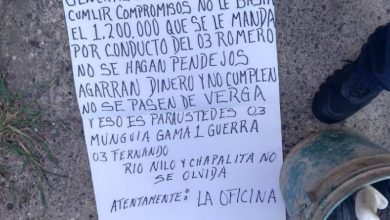 CUMLIR COMPROMISOS NO LE BASTA
EL 1,200,000 QUE SE LE MANDA
POR CONDUCTO DEL 03 ROMERO
NO SE HAGAN PENDEJOS
AGARRAN DINERO Y NO CUMPLEN
NO SE PASEN DE VERGA
Y ESO ES PARAUSTEDES 03
MUNGUIA GAMA 1 GUERRA
03 FERNANDO
RIO NILO Y CHAPALITA NO
SE OLVIDA
ATENTAMENTE: LA OFICINA